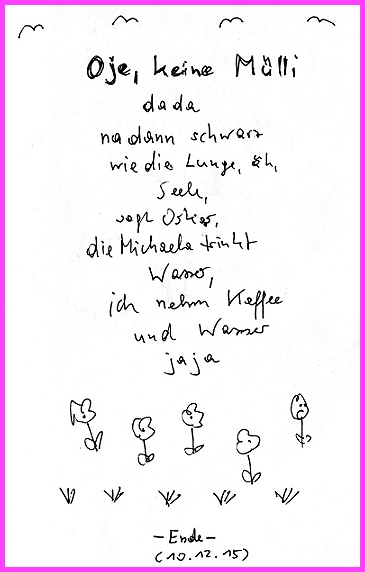 Oje, keine Mülli
dada
na dann schwarz
wie die Lunge, äh,
Seele,
sagt Oskar,
die Michaela trinkt
Wasser,
ich nehm Kaffee
und Wasser
jaja
-Ende-
(10.12.15)